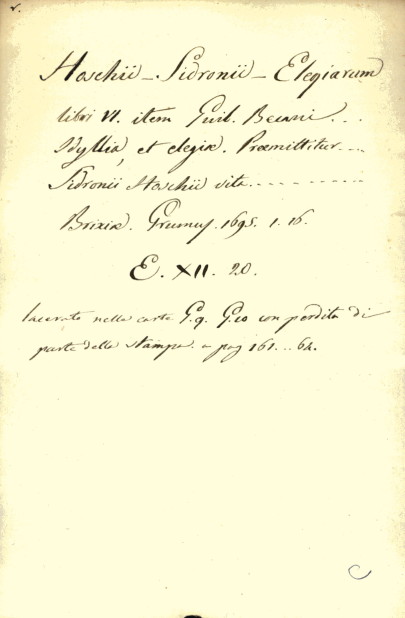 v.
Hoschii - Sidronii - Elegiarum
libri VI. item Guil. Becani ...
Idyllia, et elegiæ. Præmittitur ...
Sidronii Hoschii vita ...........
Brixiæ. Grumus. 1695. 1. 16.
E. XII. 20.
lacerato nelle carte G.9. G.10 con perdita di
parte della stampa. a pag 161...64.
C